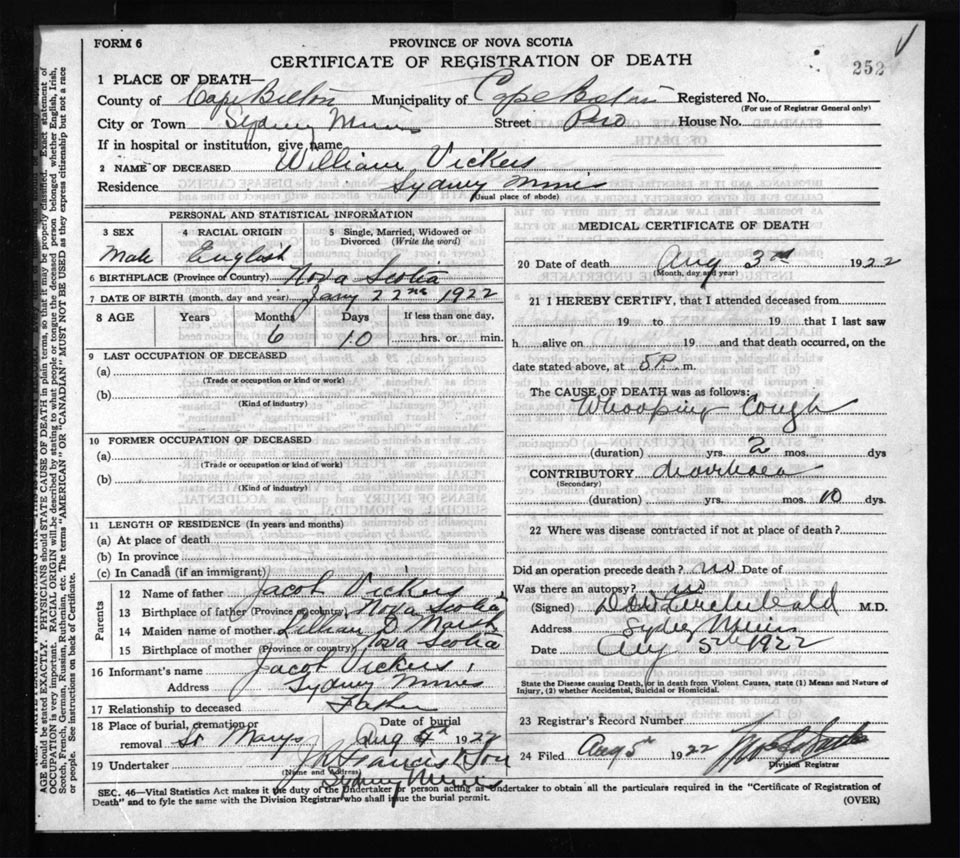 FORM 6
PROVINCE OF NOVA SCOTIA
CERTIFICATE OF REGISTRATION OF DEATH
252
1 PLACE OF DEATH—
County of Cape Breton Municipality of Cape Breton Registered No.
(For use of Registrar General only)
City or Town Sydney Mines Street House No.
If in hospital or institution, give name
2 NAME OF DECEASED William Vickers
Residence Sydney Mines
(Usual place of abode)
PERSONAL AND STATISTICAL INFORMATION
3 SEX 4 RACIAL ORIGIN 5 Single, Married, Widowed or Divorced (Write the word)
Male English
6 BIRTHPLACE (Province or Country) Nova Scotia
7 DATE OF BIRTH (month, day and year) Jany 22nd 1922
8 AGE Years Months Days If less than one day,
6 10 hrs. or min.
9 LAST OCCUPATION OF DECEASED
(a)
(Trade or occupation or kind or work)
(b)
(Kind of industry)
10 FORMER OCCUPATION OF DECEASED
(a)
(Trade or occupation or kind or work)
(b)
(Kind of industry)
11 LENGTH OF RESIDENCE (In years and months)
(a) At place of death
(b) In province
(c) In Canada (if an immigrant)
Parents
12 Name of father Jacob Vickers
13 Birthplace of father (Province or country) Nova Scotia
14 Maiden name of mother Lillian D Marsh
15 Birthplace of mother (Province or country) Nova Scotia
16 Informant's name Jacob Vickers
Address Sydney Mines
17 Relationship to deceased Father
18 Place of burial, cremation or removal St Marys Date of burial Aug 4th 1922
19 Undertaker Francis & Son
(Name and Address) Sydney Mines
MEDICAL CERTIFICATE OF DEATH
20 Date of death Aug 3rd 1922
(Month, day and year)
21 I HEREBY CERTIFY, that I attended deceased from
19 to 19 that I last saw
h alive on 19 and that death occurred, on the
date stated above, at 5P. m.
The CAUSE OF DEATH was as follows:
Whooping Cough
(duration) yrs. 2 mos. dys
CONTRIBUTORY diarrhoea
(Secondary)
(duration) yrs. mos. 10 dys.
22 Where was disease contracted if not at place of death?
Did an operation precede death? no Date of
Was there an autopsy? no
(Signed) M.D.
Address Sydney Mines
Date Aug 5th 1922
State the Disease causing Death, or in death from Violent Causes, state (1) Means and Nature of Injury, (2) whether Accidental, Suicidal or Homicidal.
23 Registrar's Record Number
24 Filed Aug 5th 1922
Division Registrar
SEC. 46—Vital Statistics Act makes it the duty of the Undertaker or person acting as Undertaker to obtain all the particulars required in the "Certificate of Registration of
Death" and to fyle the same with the Division Registrar who shall issue the burial permit. (OVER)
AGE should be stated EXACTLY. PHYSICIANS should STATE CAUSE OF DEATH in plain terms, so that it may be properly classified. Exact statement of
OCCUPATION is very important. RACIAL ORIGIN will be described by stating to what people or tongue the deceased person belonged whether English, Irish,
Scotch, French, German, Russian, Ruthenian, etc. The terms "AMERICAN" OR "CANADIAN" MUST NOT BE USED as they express citizenship but not a race
or people. See instructions on back of Certificate.